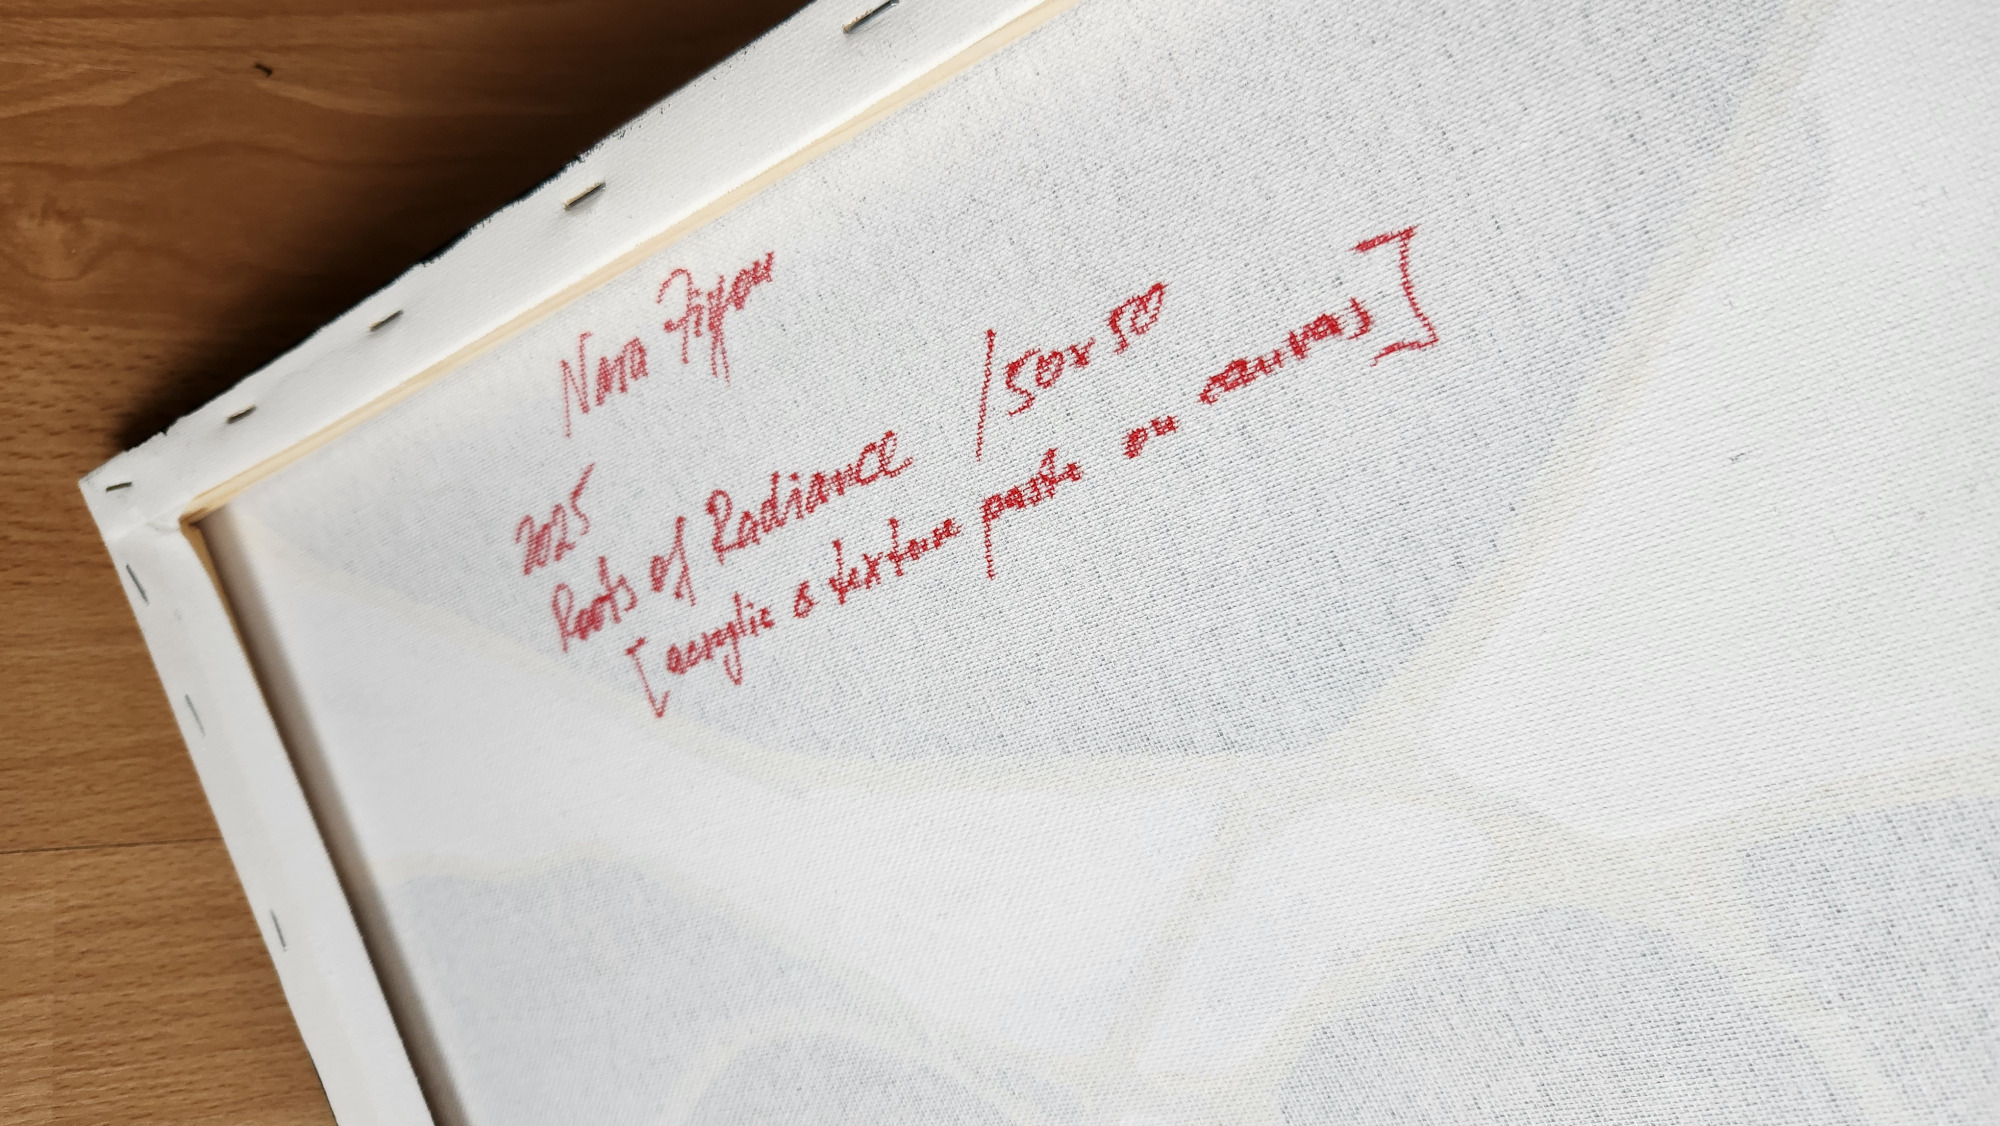 Nara
2025
Roots of Radiance / 50x50
[acrylic & texture paste on canvas]